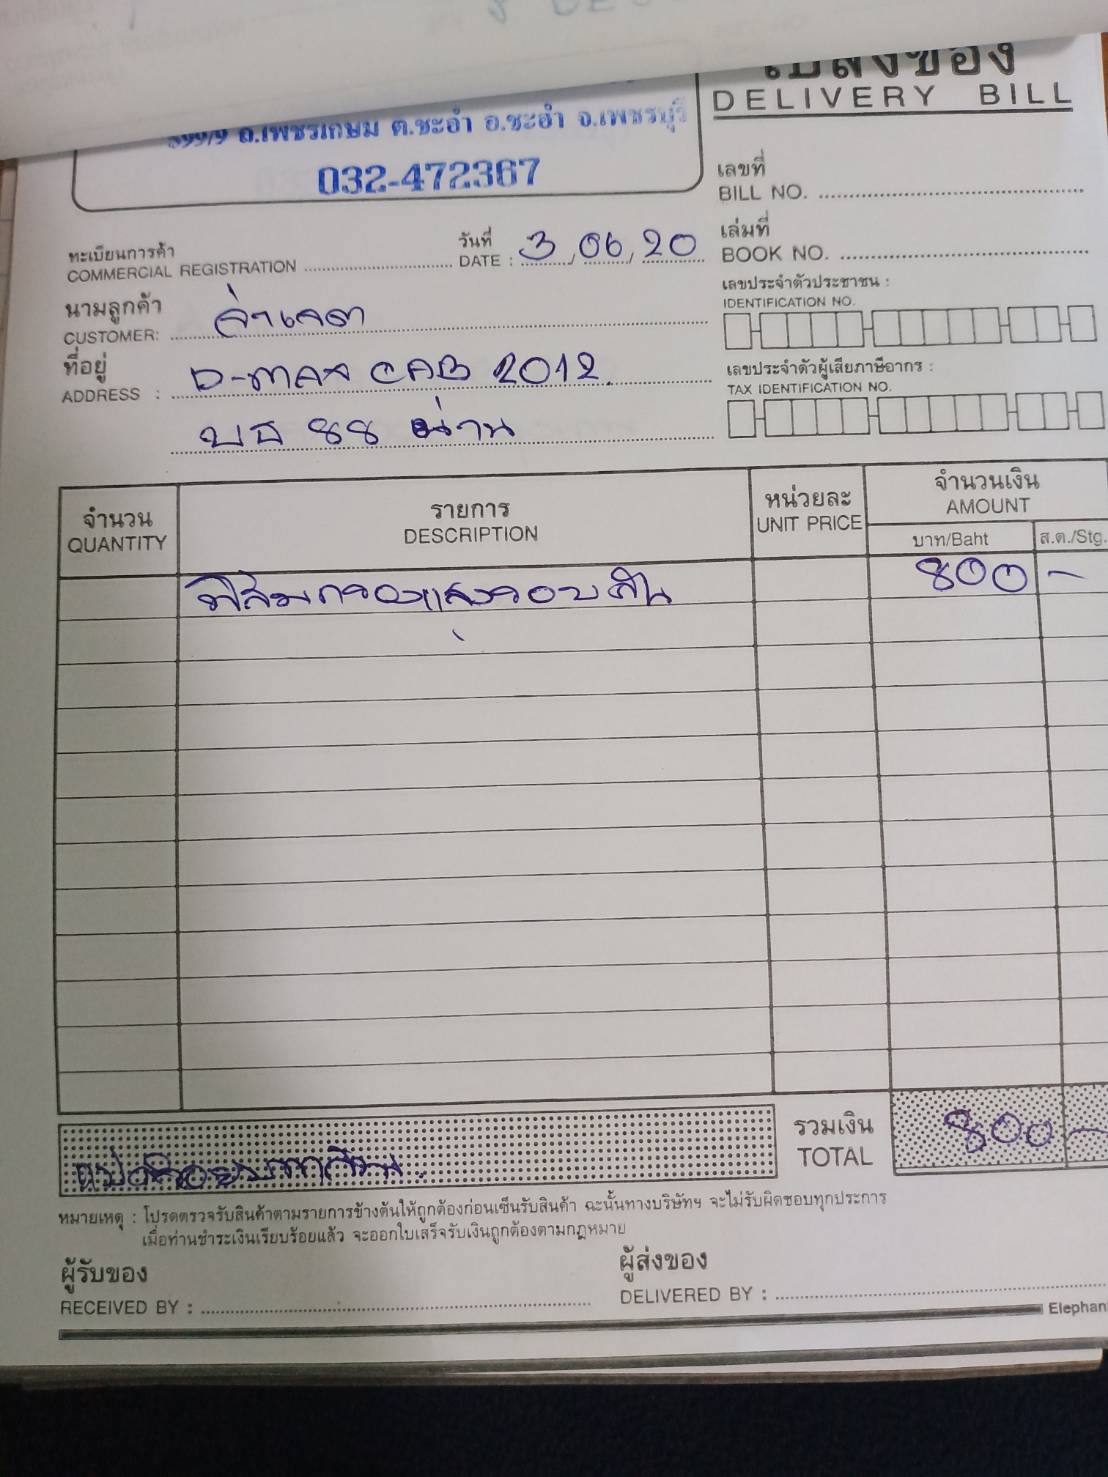 ใบส่งของ
DELIVERY BILL
599/9 ถ.เพชรเกษม ต.ชะอำ อ.ชะอำ จ.เพชรบุรี
032-472367
เลขที่
BILL NO.
เล่มที่
BOOK NO.
ทะเบียนการค้า
COMMERCIAL REGISTRATION
วันที่
DATE : 3/06/20
นามลูกค้า
CUSTOMER:
เลขประจำตัวประชาชน :
IDENTIFICATION NO.
ที่อยู่
ADDRESS : D-MAX CAB 2012
เลขประจำตัวผู้เสียภาษีอากร :
TAX IDENTIFICATION NO.
บธ 88 น่าน
จำนวน
QUANTITY
รายการ
DESCRIPTION
หน่วยละ
UNIT PRICE
จำนวนเงิน
AMOUNT
บาท/Baht ส.ต./Stg.
ฟิล์มกรองแสงรอบคัน 800 -
รวมเงิน
TOTAL 800 -
หมายเหตุ : โปรดตรวจรับสินค้าตามรายการข้างต้นให้ถูกต้องก่อนเซ็นรับสินค้า ฉะนั้นทางบริษัทฯ จะไม่รับผิดชอบทุกประการ
เมื่อท่านชำระเงินเรียบร้อยแล้ว จะออกใบเสร็จรับเงินถูกต้องตามกฎหมาย
ผู้รับของ
RECEIVED BY :
ผู้ส่งของ
DELIVERED BY :
Elephant